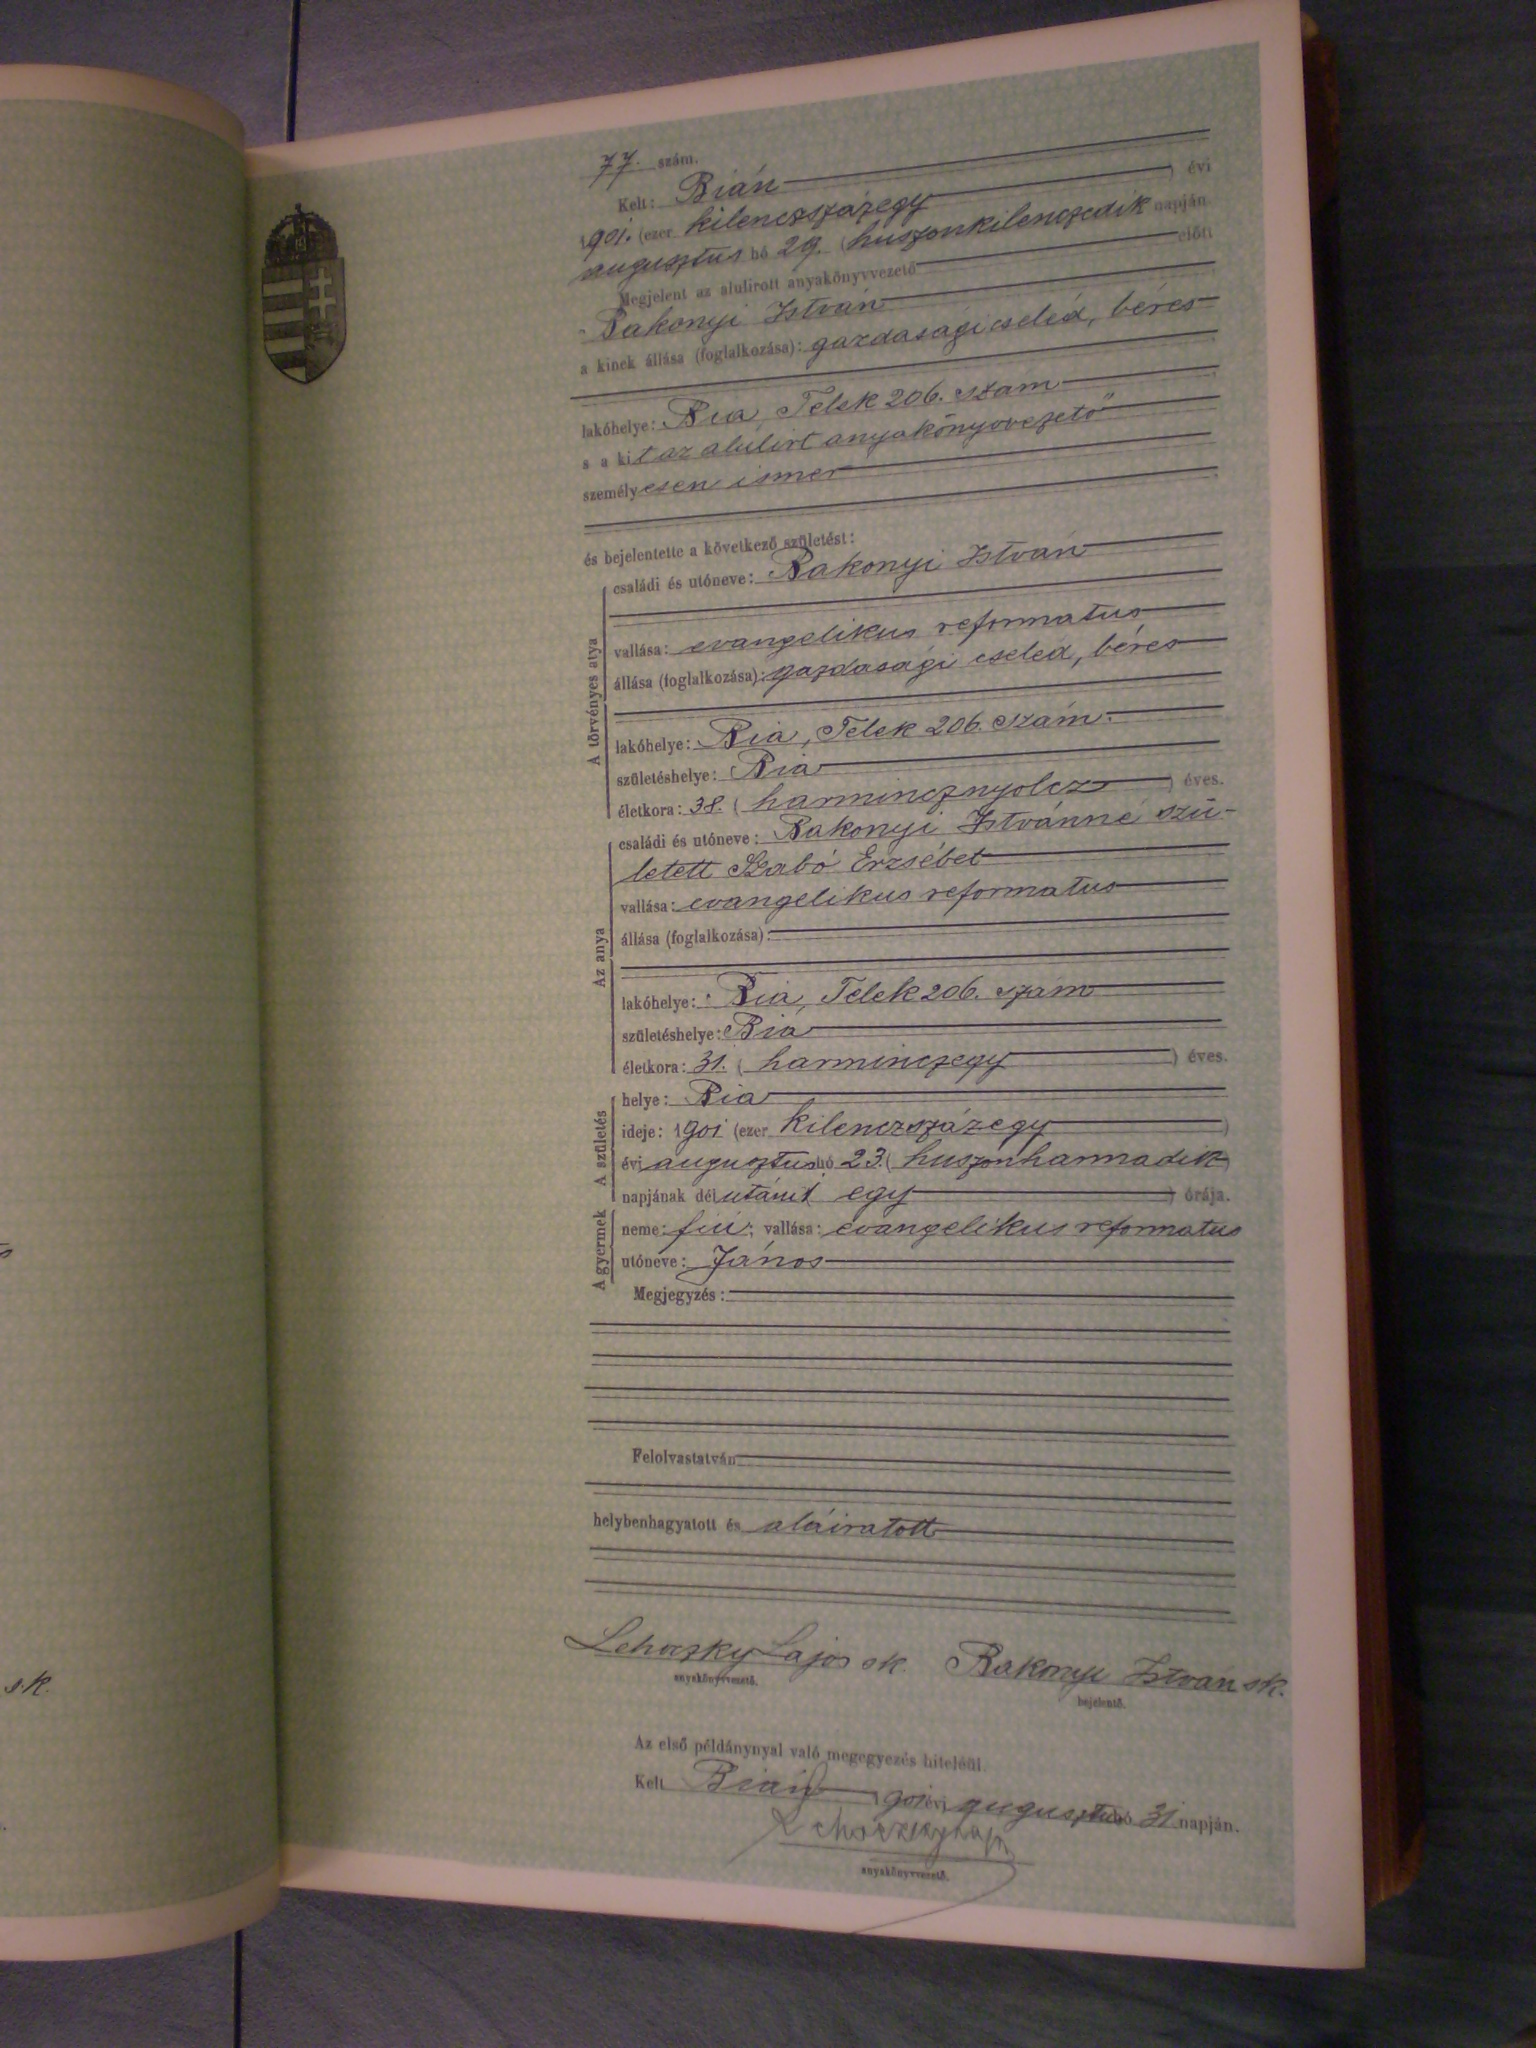 77. szám.
Kelt: Bián évi
1901. (ezer kilenczszázegy
augusztus hó 29. (huszonkilenczedik napján
Megjelent az alulirott anyakönyvvezető előtt
Bakonyi István
a kinek állása (foglalkozása): gazdasági cseléd, béres
lakóhelye: Bia, Telek 206. szám
s a kit az alulirt anyakönyvvezető
személyesen ismer
és bejelentette a következő születést:
A törvényes atya
családi és utóneve: Bakonyi István
vallása: evangelikus reformatus
állása (foglalkozása): gazdasági cseléd, béres
lakóhelye: Bia, Telek 206. szám.
születéshelye: Bia
életkora: 38. (harmincznyolcz) éves.
Az anya
családi és utóneve: Bakonyi Istvánné szü-
letett Szabó Erzsébet
vallása: evangelikus reformatus
állása (foglalkozása):
lakóhelye: Bia, Telek 206. szám
születéshelye: Bia
életkora: 31. (harminczegy) éves.
A születés
helye: Bia
ideje: 1901 (ezer kilenczszázegy)
évi augusztus hó 23. (huszonharmadik)
napjának délutáni (egy) órája.
A gyermek
neme: fiú; vallása: evangelikus reformatus
utóneve: János
Megjegyzés:
Felolvastatván
helybenhagyatott és aláiratott
Lehoczky Lajos sk. Bakonyi István sk.
anyakönyvvezető. bejelentő.
Az első példánynyal való megegyezés hiteléül.
Kelt Bián 1901 évi augusztus hó 31 napján.
Lehoczky Lajos
anyakönyvvezető.
s.k.